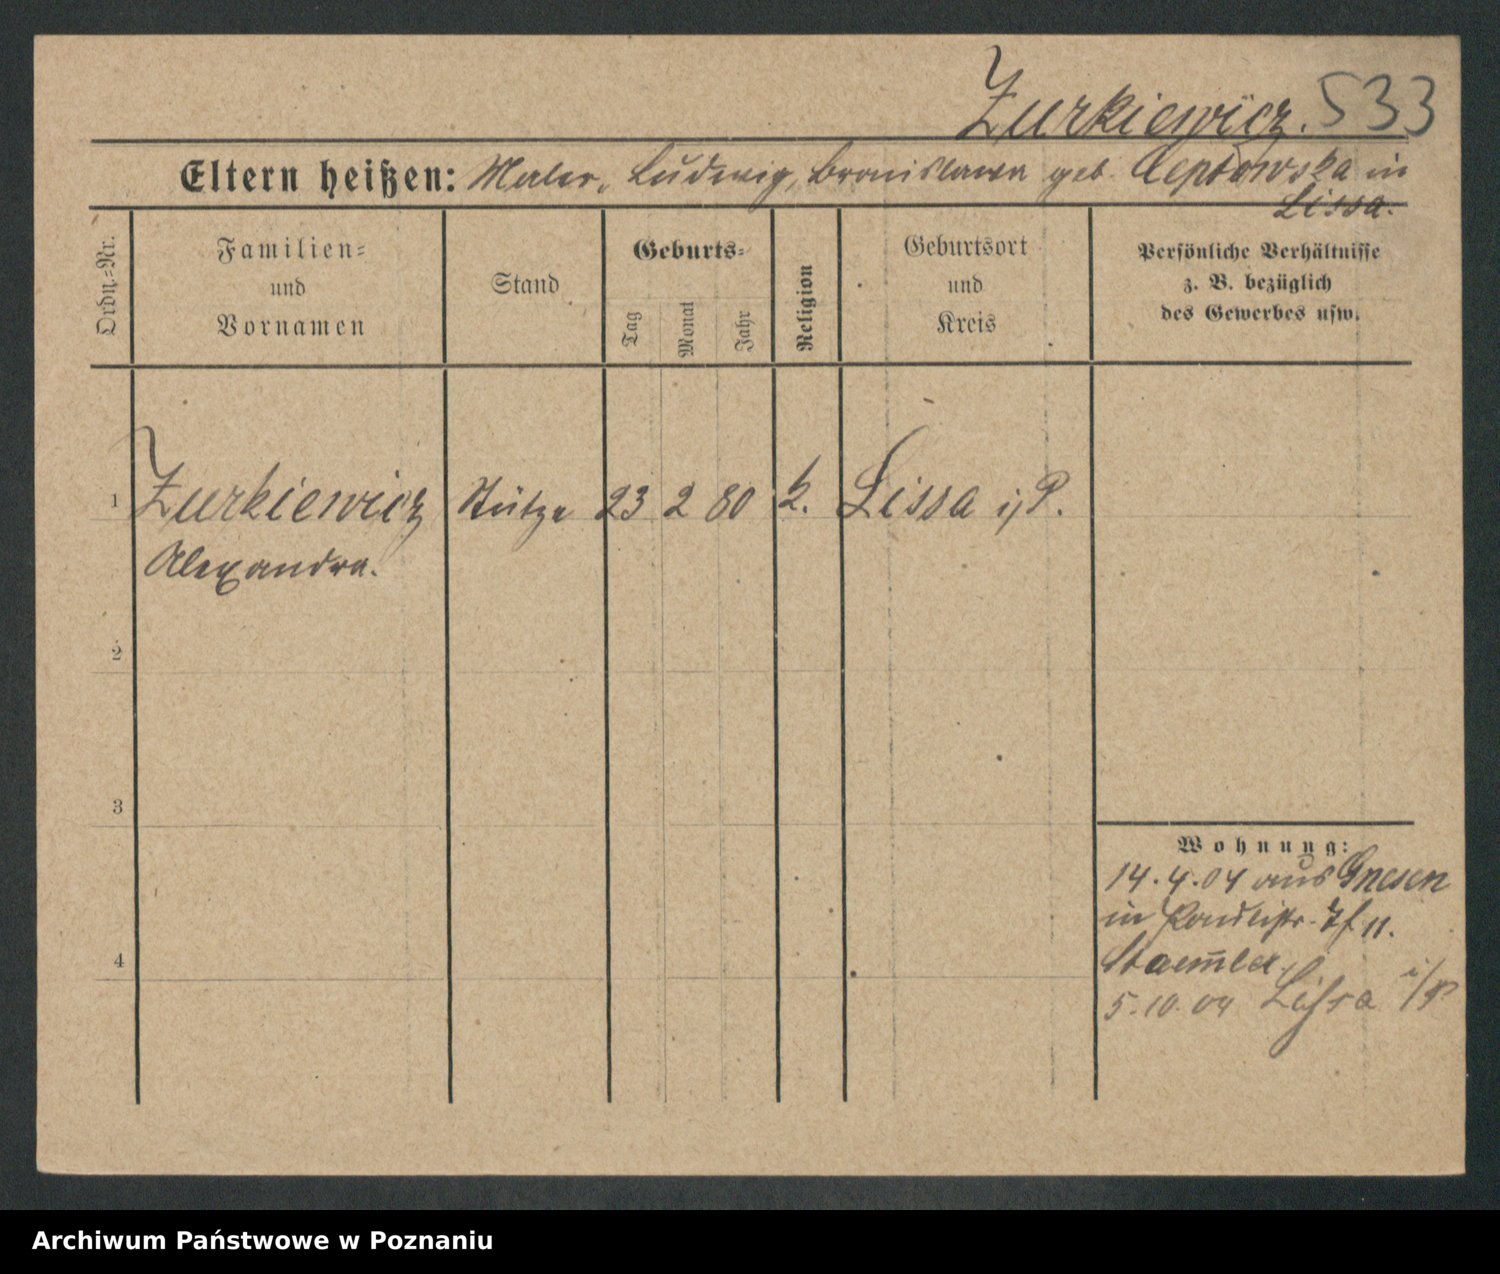 Zurkiewicz. 533
Eltern heißen: Maler, Ludwig, Bronislawa geb. Ceptowska in
Lissa.
Ordn.=Nr.
Familien=
und
Vornamen
Stand
Geburts=
Tag
Monat
Jahr
Religion
Geburtsort
und
Kreis
Persönliche Verhältnisse
z. B. bezüglich
des Gewerbes usw.
1 Zurkiewicz Stütze 23 2 80 k. Lissa i/P.
Alexandra.
2
3
Wohnung:
14.4.04 aus Gnesen
in 11.
4
5.10.04 Lissa i/P
Archiwum Państwowe w Poznaniu